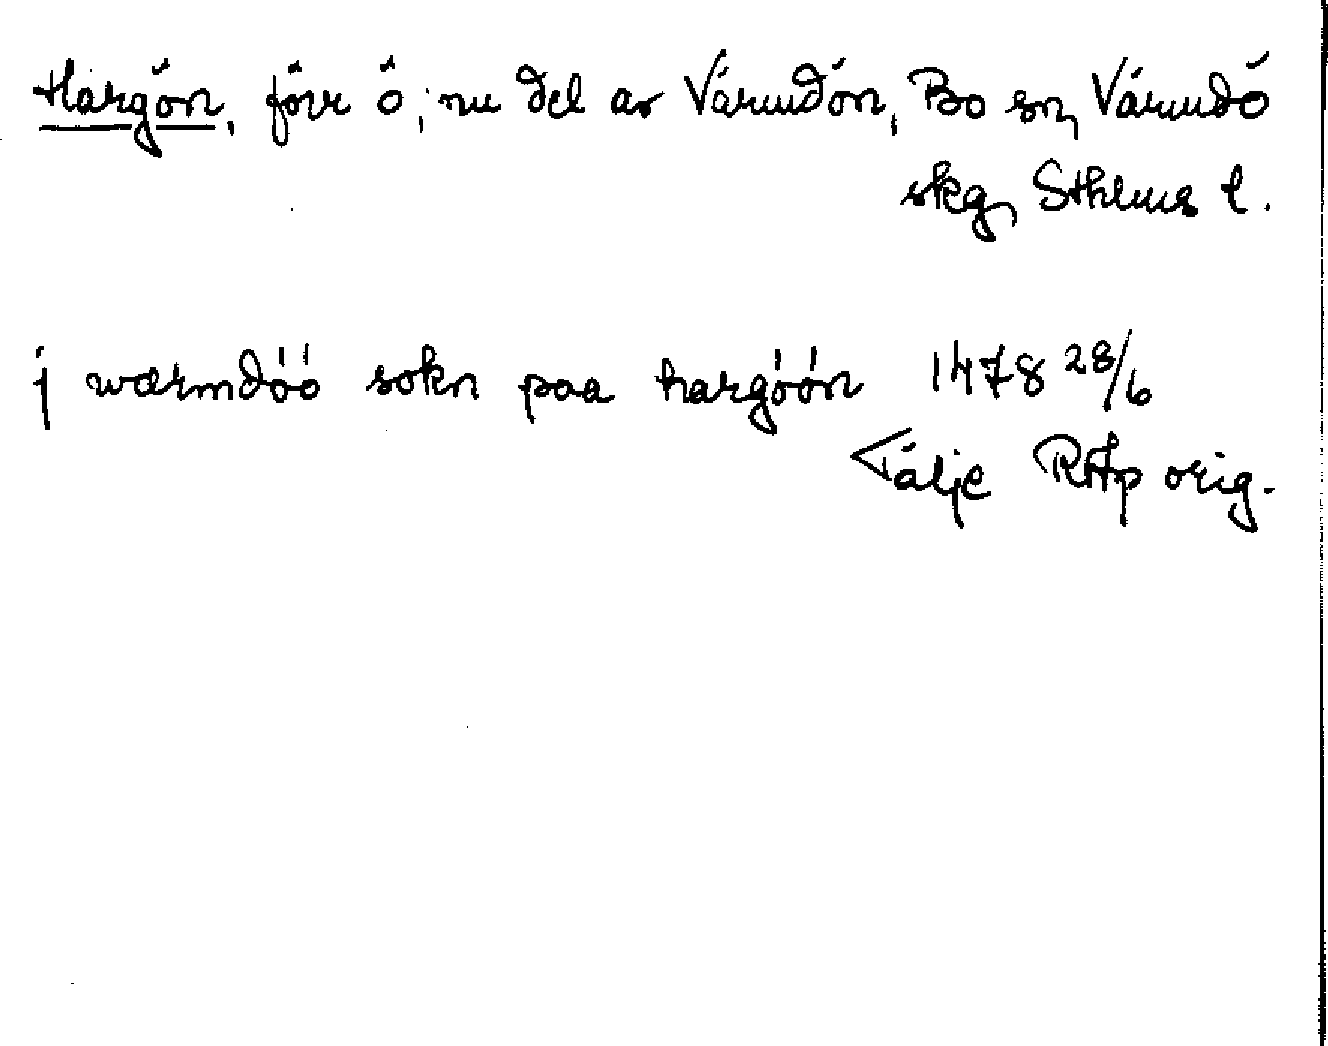 Hargön, förr ö, nu del av Värmdön, Bo sn, Värmdö
skg, Sthlms l.
j wærmdöö sokn paa hargöön 1478 28/6
Tälje RAp orig.